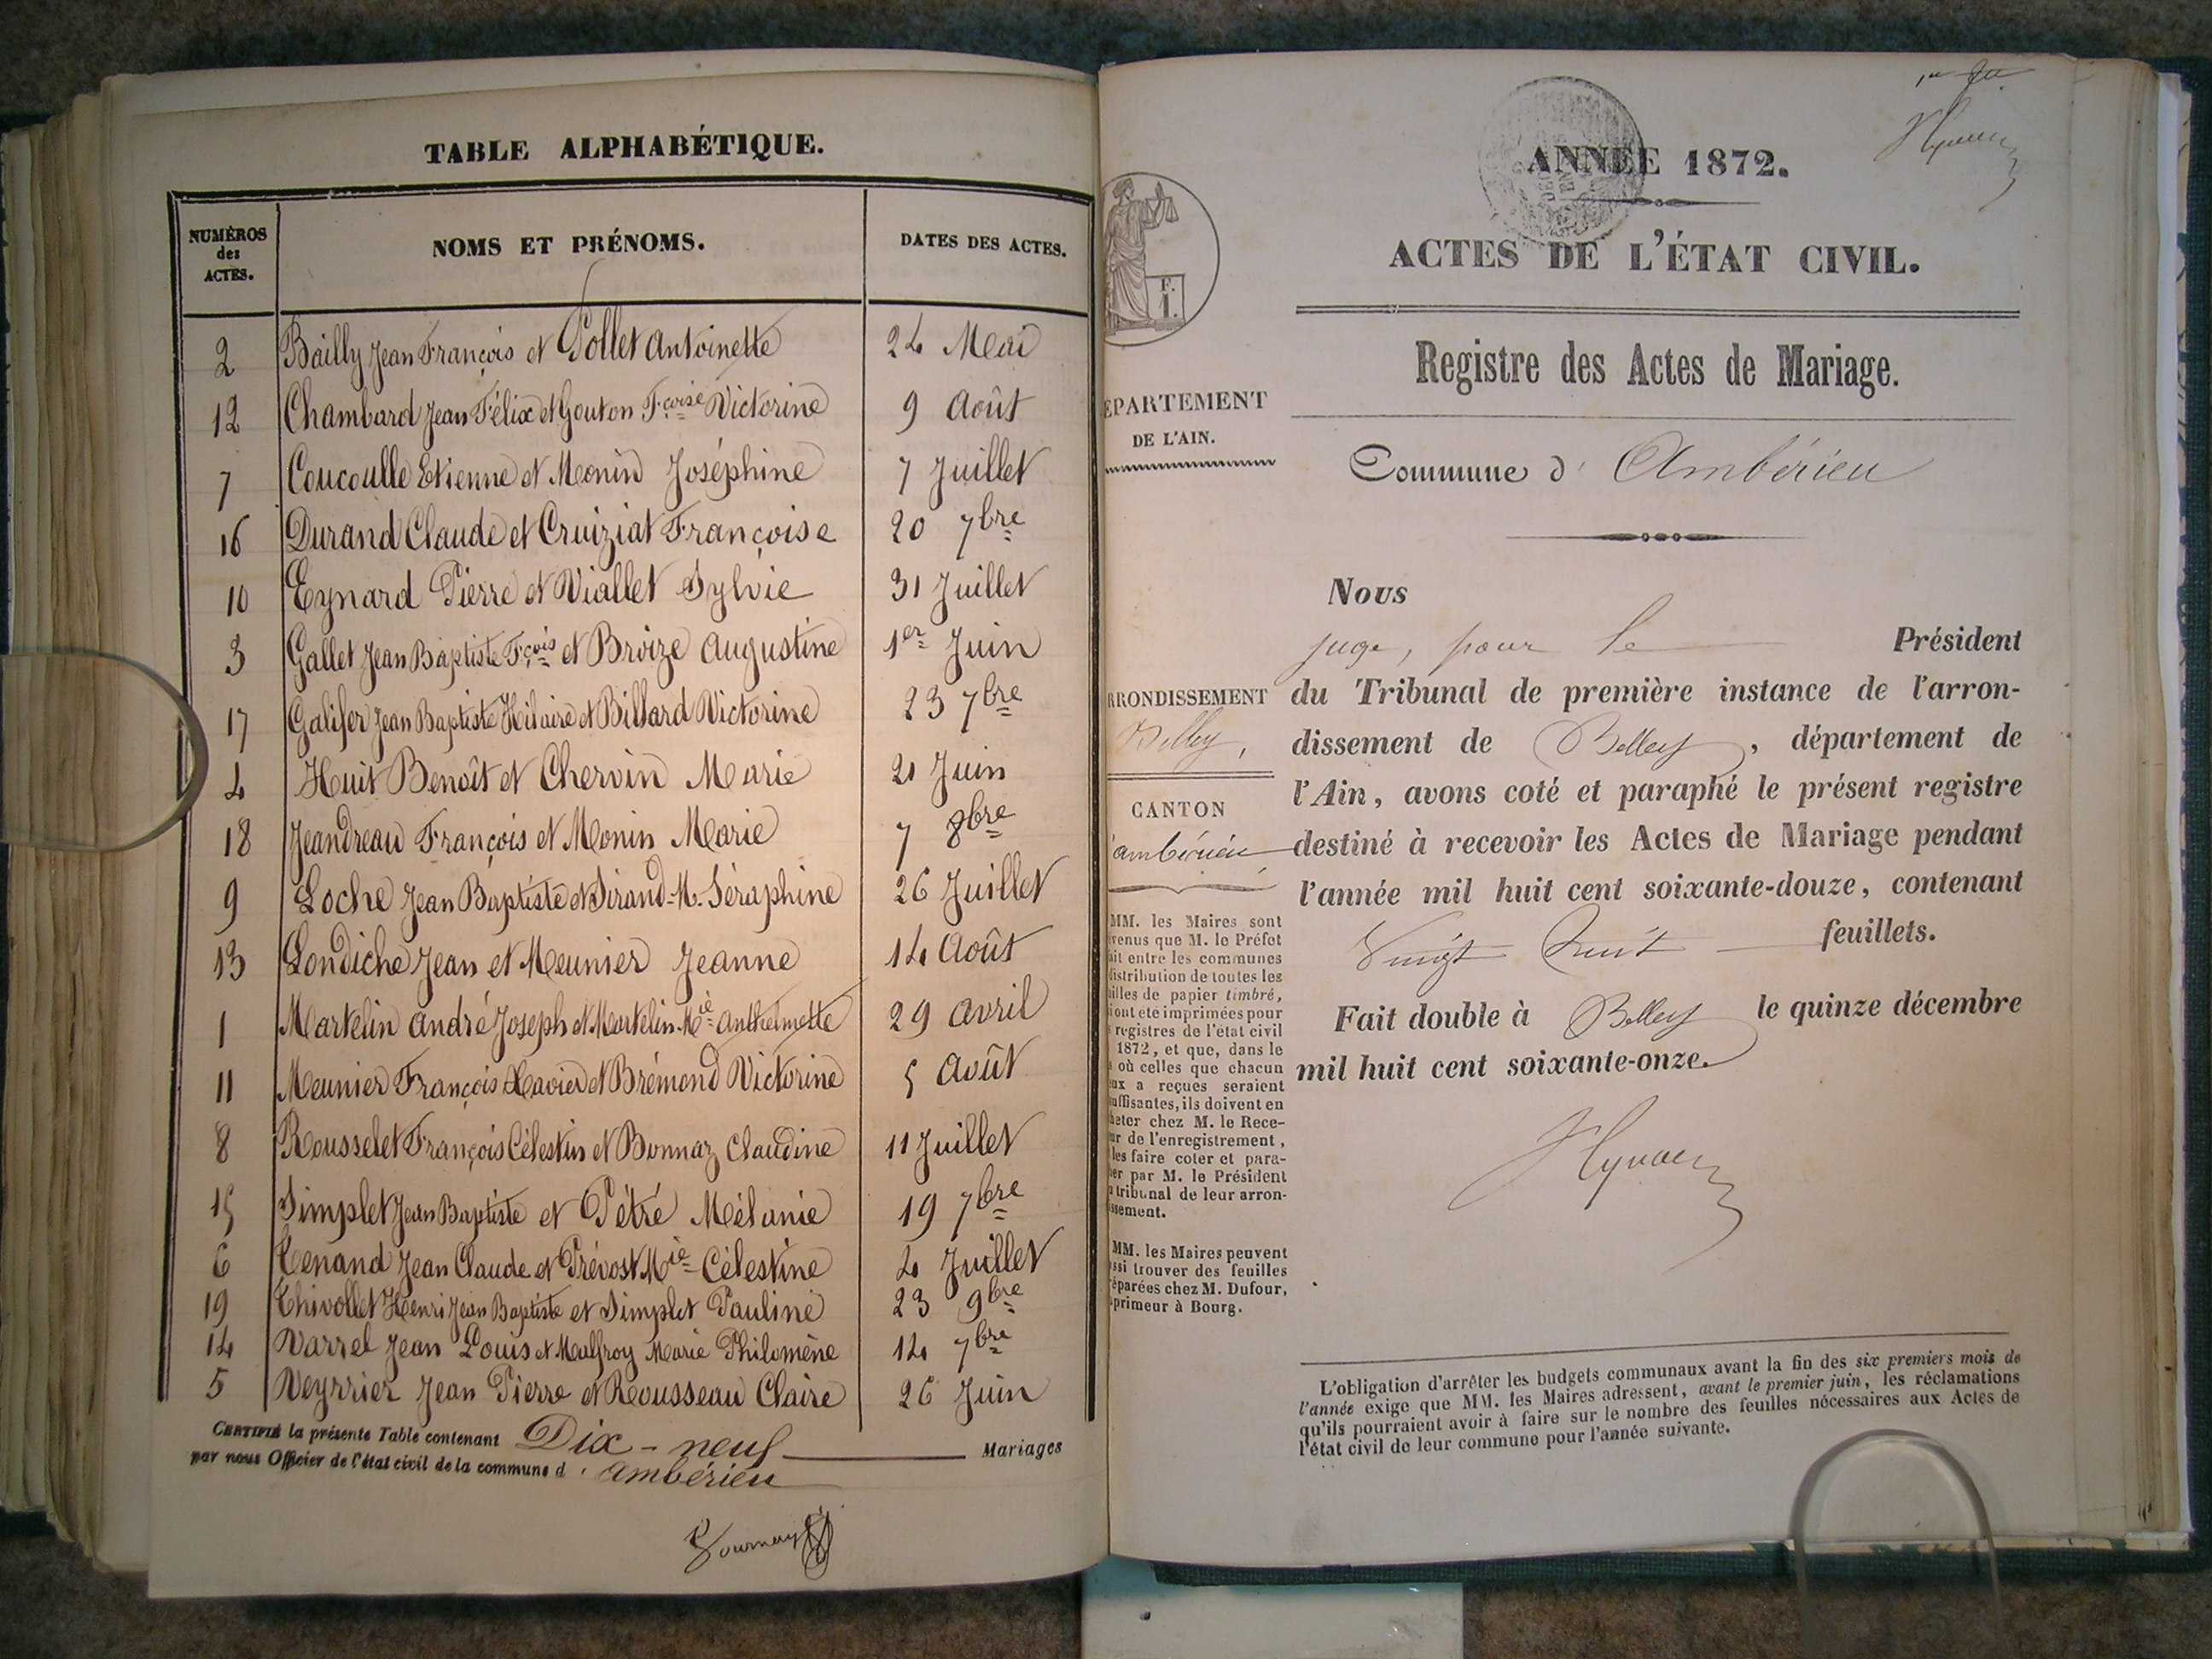 TABLE ALPHABÉTIQUE.
NUMÉROS des ACTES. NOMS ET PRÉNOMS. DATES DES ACTES.
2 Bailly Jean François et Pollet Antoinette 24 Mai
12 Chambard Jean Félix et Gouton Fçoise Victorine 9 Août
7 Coucoulle Etienne et Monin Joséphine 7 Juillet
16 Durand Claude et Cruiziat Françoise 20 7bre
10 Eynard Pierre et Viallet Sylvie 31 Juillet
3 Gallet Jean Baptiste Fçois et Broize Augustine 1er Juin
17 Galifer Jean Baptiste Hilaire et Billard Victorine 23 7bre
4 Huit Benoît et Chervin Marie 21 Juin
18 Jeandreau François et Monin Marie 7 8bre
9 Loche Jean Baptiste et Sirand-M. Séraphine 26 Juillet
13 Londiche Jean et Meunier Jeanne 14 Août
1 Martelin André Joseph et Martelin Mie Anthelmette 29 Avril
11 Meunier François Xavier et Brémond Victorine 5 Août
8 Rousselet François Célestin et Bonnaz Claudine 11 Juillet
15 Simplet Jean Baptiste et Pétré Mélanie 19 7bre
6 Tenand Jean Claude et Prévost Mie Célestine 4 Juillet
19 Thivollet Henri Jean Baptiste et Simplet Pauline 23 9bre
14 Varrel Jean Louis et Malfroy Marie Philomène 14 7bre
5 Veyrrier Jean Pierre et Rousseau Claire 26 Juin
CERTIFIÉ la présente Table contenant Dix-neuf Mariages
par nous Officier de l'état civil de la commune d'Ambérieu
ANNÉE 1872.
ACTES DE L'ÉTAT CIVIL.
F.
1.
Registre des Actes de Mariage.
ÉPARTEMENT
DE L'AIN.
Commune d'Ambérieu
Nous
juge, pour le Président
RRONDISSEMENT
Belley,
du Tribunal de première instance de l'arron-
dissement de Belley, département de
l'Ain, avons coté et paraphé le présent registre
CANTON
ambérieu
destiné à recevoir les Actes de Mariage pendant
l'année mil huit cent soixante-douze, contenant
Vingt huit feuillets.
Fait double à Belley le quinze décembre
mil huit cent soixante-onze.
MM. les Maires sont
venus que M. le Préfet
ait entre les communes
distribution de toutes les
illes de papier timbré,
ont été imprimées pour
registres de l'état civil
1872, et que, dans le
où celles que chacun
eux a reçues seraient
uffisantes, ils doivent en
heter chez M. le Rece-
ur de l'enregistrement,
les faire coter et para-
her par M. le Président
tribunal de leur arron-
ssement.
MM. les Maires peuvent
ssi trouver des feuilles
éparées chez M. Dufour,
primeur à Bourg.
L'obligation d'arrêter les budgets communaux avant la fin des six premiers mois de
l'année exige que MM. les Maires adressent, avant le premier juin, les réclamations
qu'ils pourraient avoir à faire sur le nombre des feuilles nécessaires aux Actes de
l'état civil de leur commune pour l'année suivante.